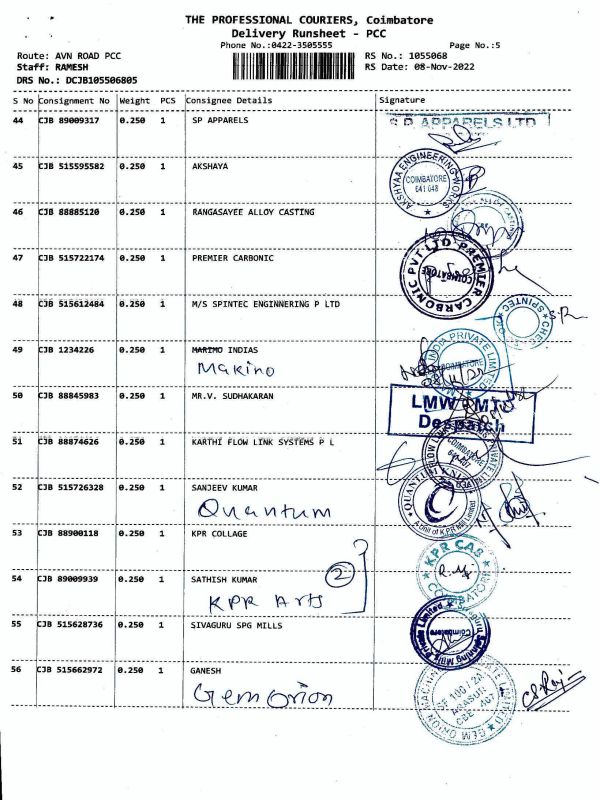 THE PROFESSIONAL COURIERS, Coimbatore
Delivery Runsheet - PCC
Phone No.:0422-3505555 Page No.:5
Route: AVN ROAD PCC RS No.: 1055068
Staff: RAMESH RS Date: 08-Nov-2022
DRS No.: DCJB105506805
S No Consignment No Weight PCS Consignee Details Signature
44 CJB 89009317 0.250 1 SP APPARELS
S.P. APPARELS LTD
45 CJB 515595582 0.250 1 AKSHAYA
AKSHYAA ENGINEERING WORKS
COIMBATORE
641 048
46 CJB 88885120 0.250 1 RANGASAYEE ALLOY CASTING
ALLOY CASTING
47 CJB 515722174 0.250 1 PREMIER CARBONIC
PREMIER CARBONIC PVT LTD
COIMBATORE
48 CJB 515612484 0.250 1 M/S SPINTEC ENGINNERING P LTD
SPINTEC
S.R
49 CJB 1234226 0.250 1 MARIMO INDIAS
Makino
INDIA PRIVATE LIMITED
COIMBATORE
50 CJB 88845983 0.250 1 MR.V. SUDHAKARAN
LMW
Despatch
51 CJB 88874626 0.250 1 KARTHI FLOW LINK SYSTEMS P L
COIMBATORE
52 CJB 515726328 0.250 1 SANJEEV KUMAR
Quantum
QUANTUM KNITS
A Unit of K.P.R Mill Limited
53 CJB 88900118 0.250 1 KPR COLLAGE
KPR CAS
COIMBATORE
54 CJB 89009939 0.250 1 SATHISH KUMAR
2
KPR Arts
55 CJB 515628736 0.250 1 SIVAGURU SPG MILLS
Sivaguru Spinning Mills Private Limited
Coimbatore
56 CJB 515662972 0.250 1 GANESH
Gem Orion
GEM ORION MACHINERY PRIVATE LIMITED
ARASUR